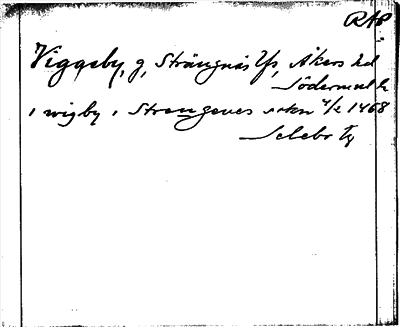 RAP
Viggeby, g, Strängnäs lfs, Åkers hd
Södermanl
i wigby i Strengenes sokn 4/2 1468